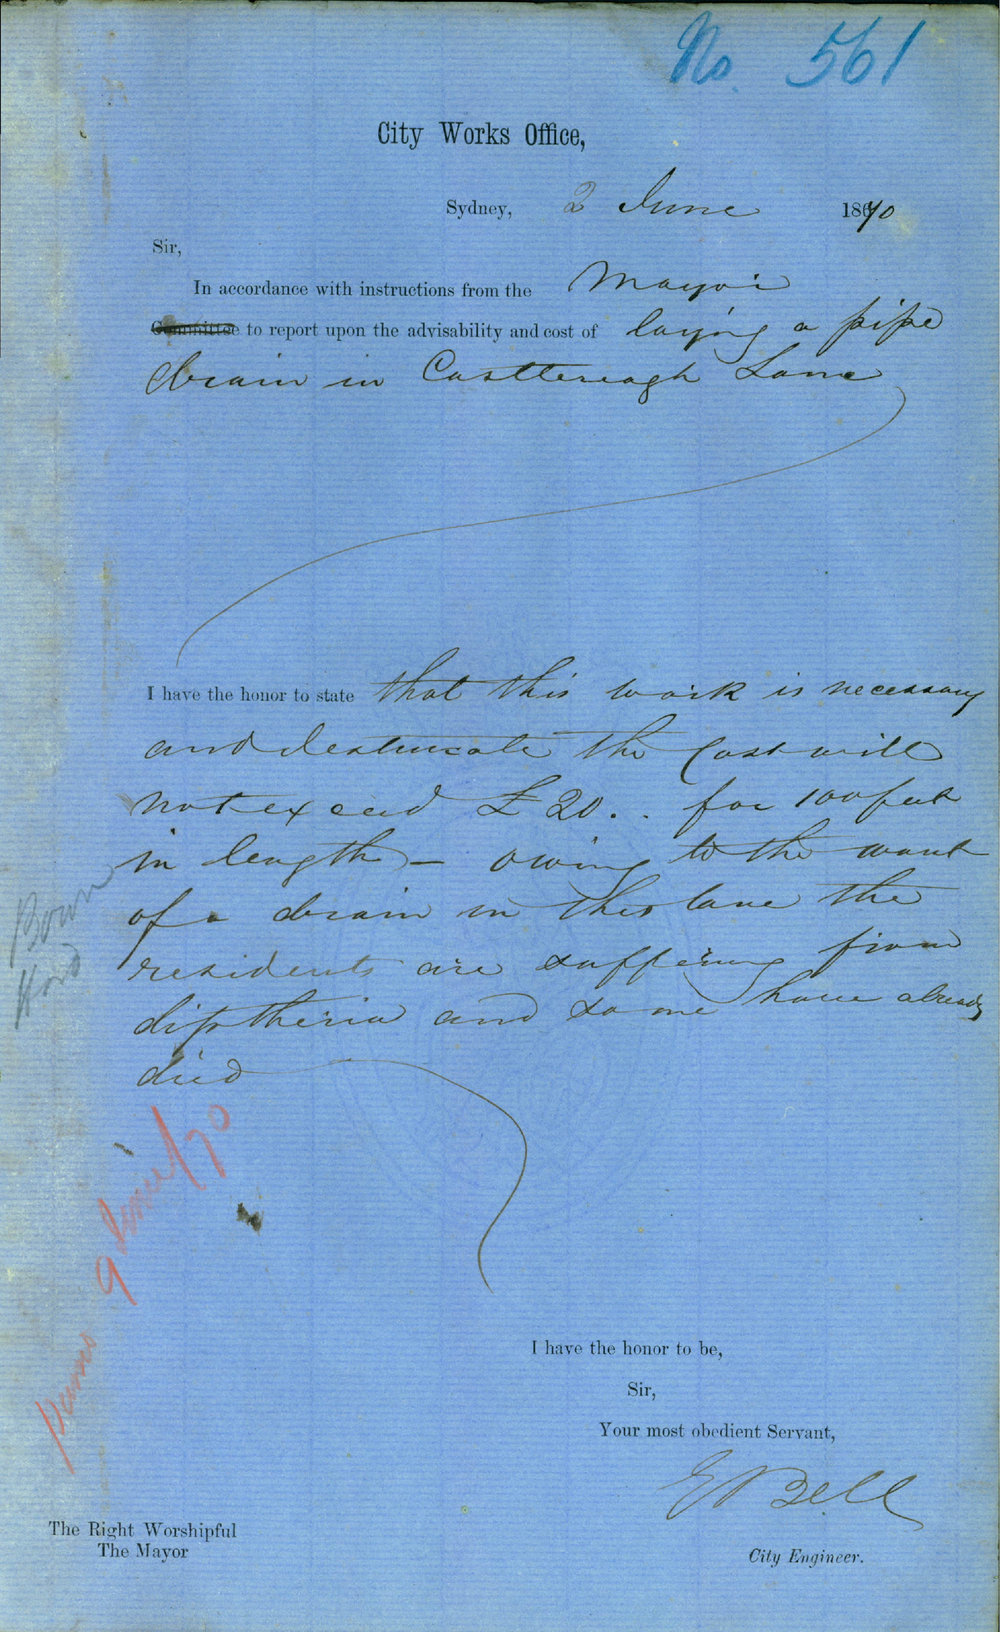 No. 561
City Works Office,
Sydney, 2 June 1870
Sir,
In accordance with instructions from the Mayor
Committee to report upon the advisability and cost of laying a pipe
drain in Castlereagh Lane
I have the honor to state that this work is necessary
and I estimate the Cost will
not exceed £20.. for 100 feet
in length – owing to the want
of a drain in this lane the
residents are suffering from
diptheria and some have already
died
9 June/70
I have the honor to be,
Sir,
Your most obedient Servant,
E Bell
City Engineer.
The Right Worshipful
The Mayor